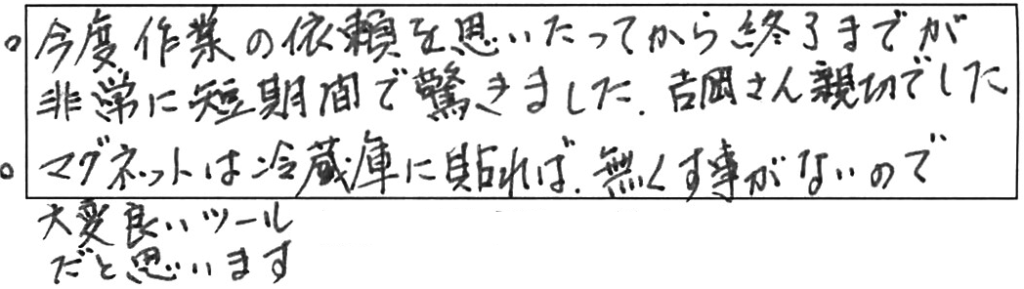 。今度作業の依頼を思いたってから終了までが
非常に短期間で驚きました. 吉岡さん親切でした
。マグネットは冷蔵庫に貼れば. 無くす事がないので
大変良いツール
だと思います